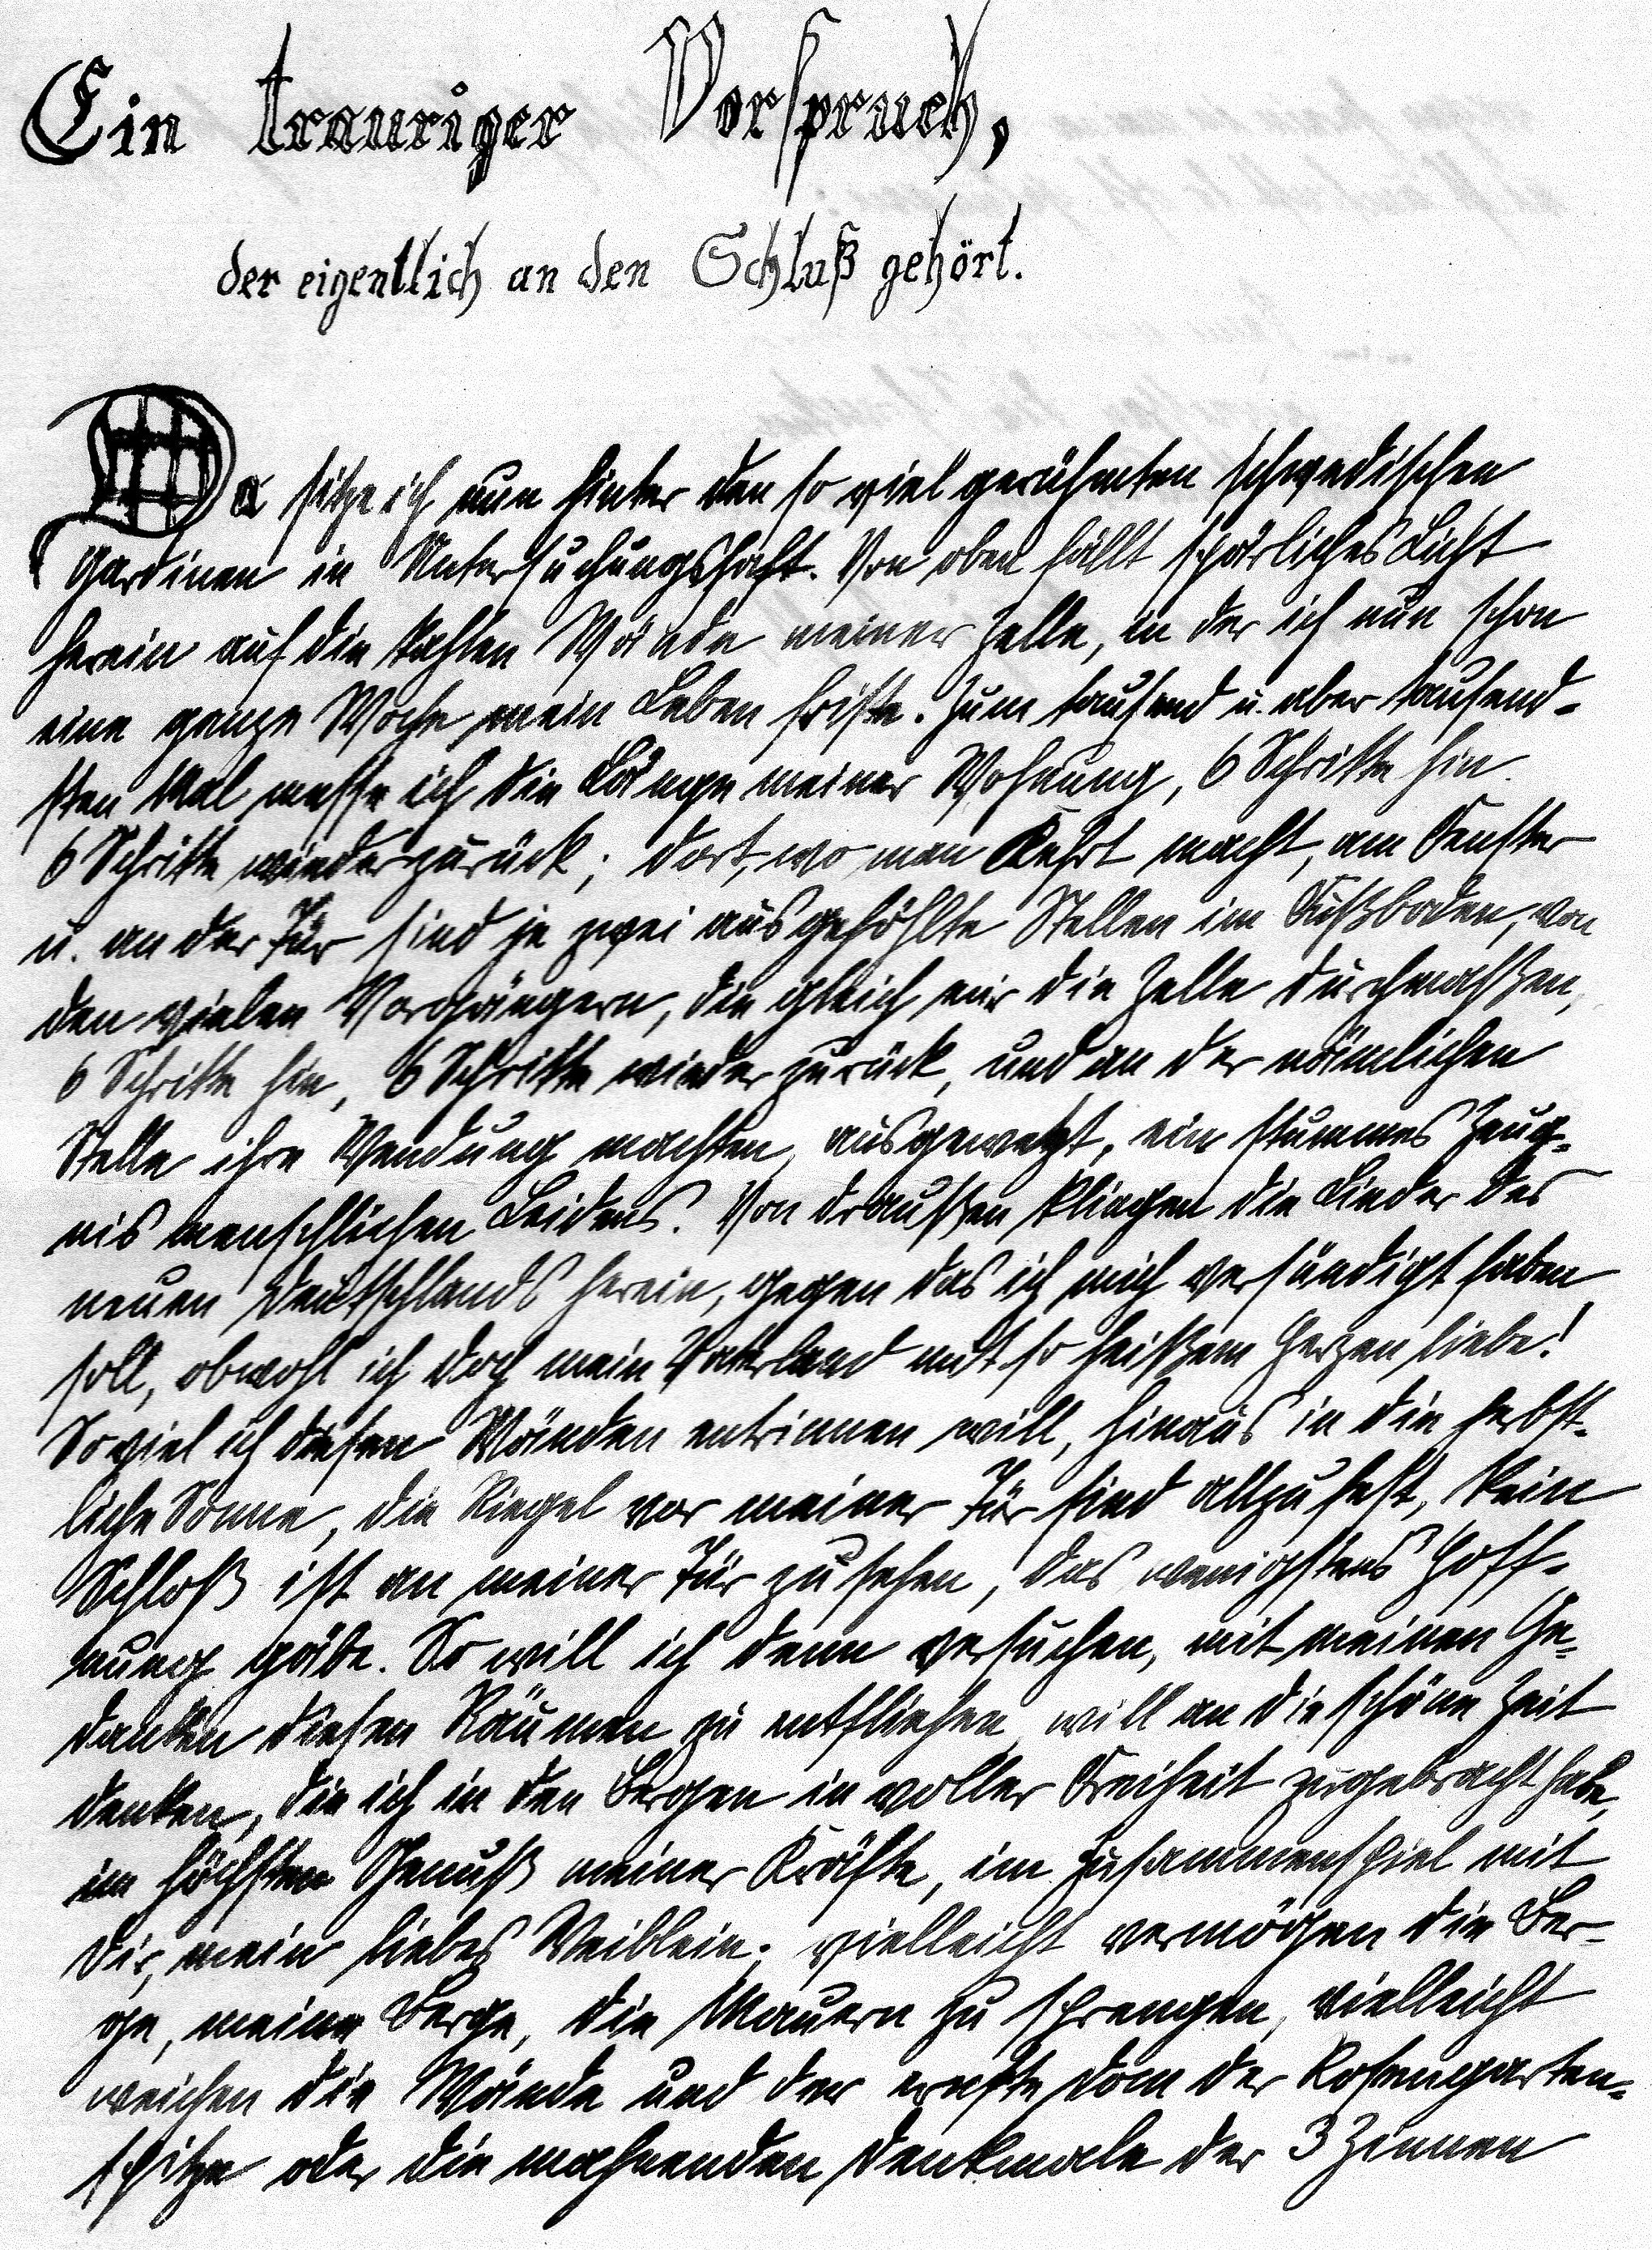 Ein trauriger Vorspruch,
der eigentlich an den Schluß gehört.
Da sitze ich nun hinter den so viel gerühmten schwedischen
Gardinen in Untersuchungshaft. Von oben fällt spärliches Licht
herein auf die kahlen Wände meiner Zelle, in der ich nun schon
eine ganze Woche mein Leben friste. Zum tausend u. aber tausend-
sten Mal messe ich die Länge meiner Wohnung, 6 Schritte hin
6 Schritte wieder zurück; dort, wo man Kehrt macht, am Fenster
u. an der Tür sind je zwei ausgehöhlte Stellen im Fußboden, von
den vielen Vorgängern, die gleich mir die Zelle durchmaßen,
6 Schritte hin, 6 Schritte wieder zurück, und an der nämlichen
Stelle ihre Wendung machten, ausgewetzt, ein stummes Zeug-
nis menschlichen Leidens. Von draußen klingen die Lieder des
neuen Deutschlands herein, gegen das ich mich versündigt haben
soll, obwohl ich doch mein Vaterland mit so heißem Herzen liebe!
Soviel ich diesen Wänden entrinnen will, hinaus in die herbst-
liche Sonne, die Riegel vor meiner Tür sind allzu fest, kein
Schloß ist an meiner Tür zu sehen, das wenigstens Hoff-
nung gäbe. So will ich denn versuchen, mit meinen Ge-
danken diesen Räumen zu entfliehen, will an die schöne Zeit
denken, die ich in den Bergen in voller Freiheit zugebracht habe,
im höchsten Genuß meiner Kräfte, im Zusammenspiel mit
Dir, mein liebes Weiblein; vielleicht vermögen die Ber-
ge, meine Berge, die Mauern zu sprengen, vielleicht
weichen die Wände und der ernste Dom der Rosengarten-
spitze oder die mahnenden Denkmale der 3 Zinnen